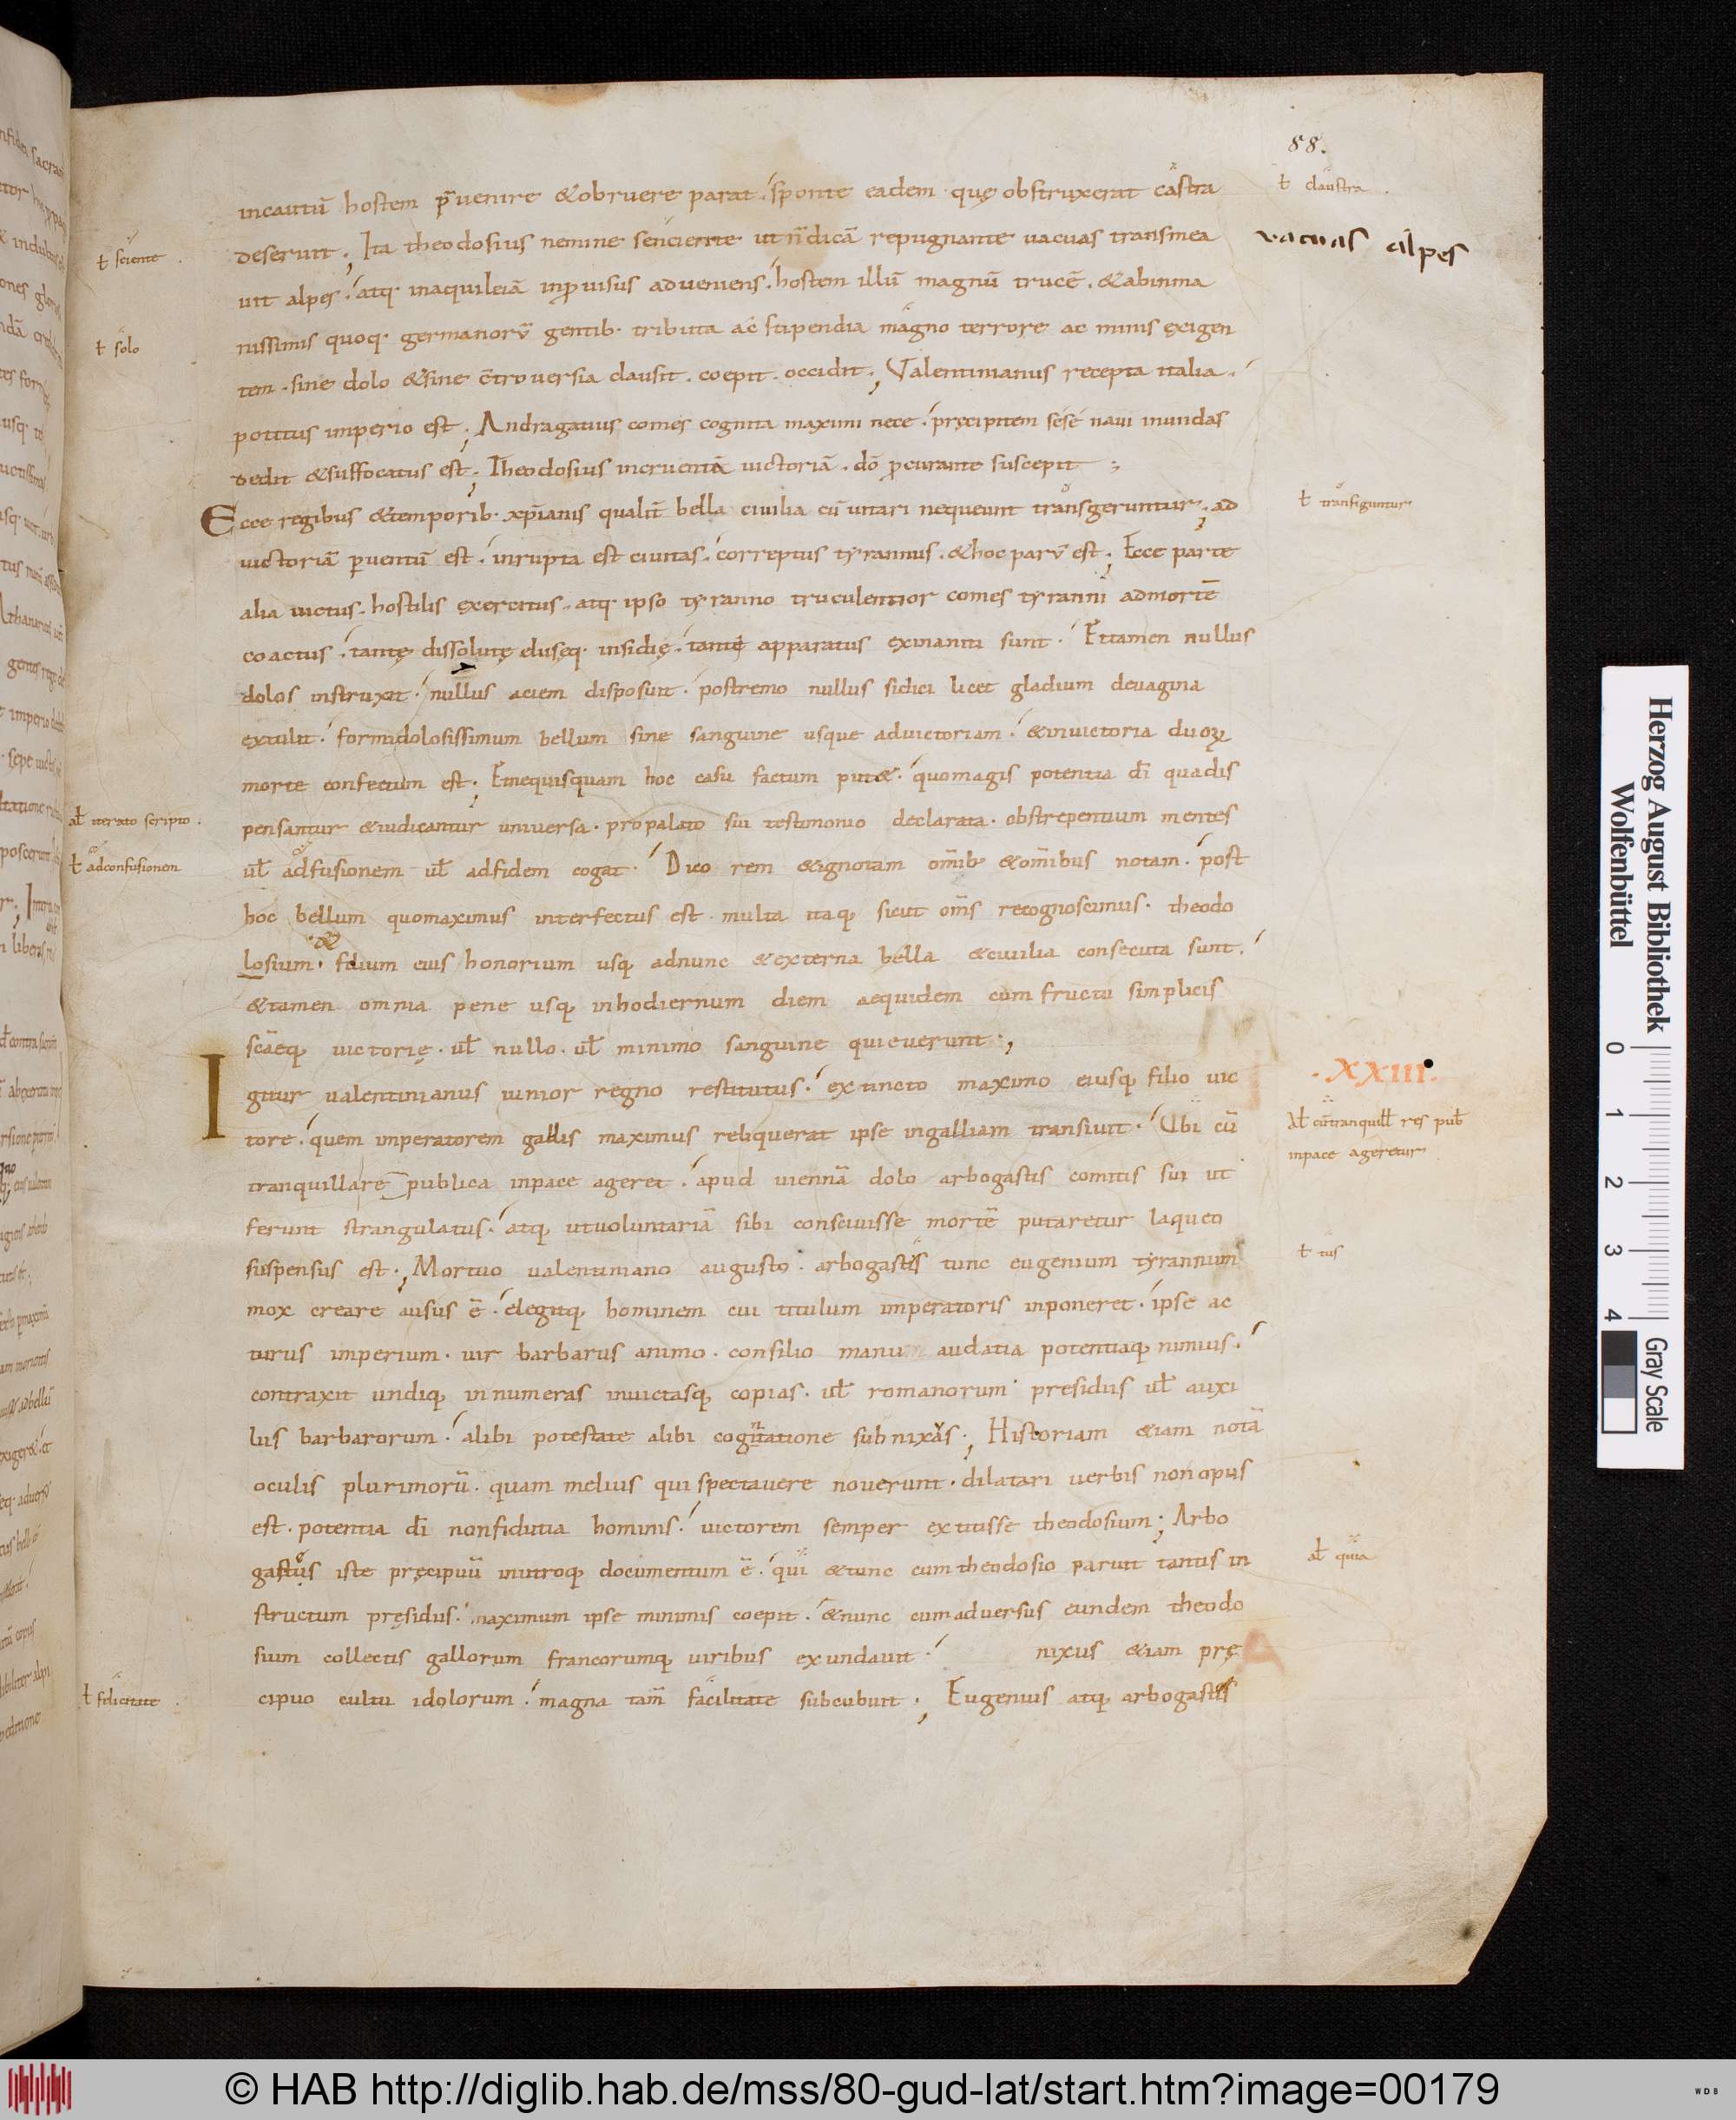 88.
incautū hostem p̄uenire &obruere parat. sponte eadem quę obstruxerat castra
ł claustra.
deseruit; Ita theodosius nemine sentiente ut n̄ dicā repugnante uacuas transmea
ł sciente.
vacuas alpes
uit alpes. atq· inaquileiā inprouisus adueniens. hostem illū magnū trucē. &abinma
nissimis quoq· germanorū gentib· tributa ac stipendia magno terrore ac minis exigen
ł solo
tem. sine dolo &sine c̄trouersia clausit. coepit. occidit; Valentinianus recepta italia.
potitus imperio est; Andragatius comes cognita maximi nece. pręcipitem sese naui inundas
dedit &suffocatus est; Theodosius incruentā uictoriā. dō procurante suscepit;
Ecce regibus &temporib· xp̄ianis qualit̄ bella ciuilia cū uitari nequeunt transgeruntur; ad
ł transiguntur
uictoriā puentū est. inrupta est ciuitas. correptus tyrannus. &hoc parū est; Ecce parte
alia uictus. hostilis exercitus. atq· ipso tyranno truculentior comes tyranni admortē
coactus. tantę dissolutę elusęq· insidię. tanti apparatus exinaniti sunt. Ettamen nullus
dolos instruxit. nullus aciem disposuit. postremo nullus sidici licet gladium deuagina
extulit. formidolosissimum bellum sine sanguine usque aduictoriam. &inuictoria duoꝝ
morte confectum est; Etnequisquam hoc casu factum put&. quomagis potentia dī quadis
pensantur &iudicantur uniuersa. propalato sui testimonio declarata. obstrepentium mentes
aƚ iterato scripto.
uƚ adfusionem uƚ adfidem cogat. Dico rem &ignotam om̄ib· &om̄ibus notam. post
ł adconfusionem
hoc bellum quomaximus interfectus est. multa itaq; sicut om̄s recognoscimus. theodo
&
losium. filium eius honorium usq; adnunc &externa bella &ciuilia consecuta sunt.
&tamen omnia pene usq; inhodiernum diem aequidem cum fructu simplicis
scāeq; uictorię. uƚ nullo. uƚ minimo sanguine quieuerunt;
·XXIII·
Igitur ualentinianus iunior regno restitutus. extincto maximo eiusq; filio uic
tore. quem imperatorem gallis maximus reliquerat ipse ingalliam transiuit. Ubi cū
Aƚ cūtranquilƚ res pubƚ
inpace ageretur
tranquillare publica inpace ageret. apud uiennā dolo arbogastis comitis sui ut
ferunt strangulatus. atq; utuoluntariā sibi consciuisse mortē putaretur laqueo
suspensus est; Mortuo ualentiniano augusto. arbogastis tunc eugenium tyrannum
ł tus
mox creare ausus ē. elegitq; hominem cui titulum imperatoris inponeret. ipse ac
turus imperium. uir barbarus animo. consilio manu audatia potentiaq; nimius.
contraxit undiq; innumeras inuictasq; copias. uƚ romanorum presidiis uƚ auxi
liis barbarorum. alibi potestate alibi cognatione subnixas; Historiam &iam notā
oculis plurimorū. quam melius qui spectauere nouerunt. dilatari uerbis non opus
est. potentia dī nonfidutia hominis. uictorem semper extitisse theodosium; Arbo
gastus iste pręcipuū inutroq; documentum ē. qui &tunc cum theodosio paruit tantis in
aƚ quia
structum pręsidiis. maximum ipse minimis coepit. &nunc cum aduersus eundem theodo
sium collectis gallorum francorumq; uiribus exundauit. nixus &iam prę
cipuo cultu idolorum. magna tam̄ facilitate subcubuit; Eugenius atq; arbogastis
ł felicitate.
Herzog August Bibliothek
Wolfenbüttel
0 1 2 3 4
Gray Scale
© HAB http://diglib.hab.de/mss/80-gud-lat/start.htm?image=00179
WDB